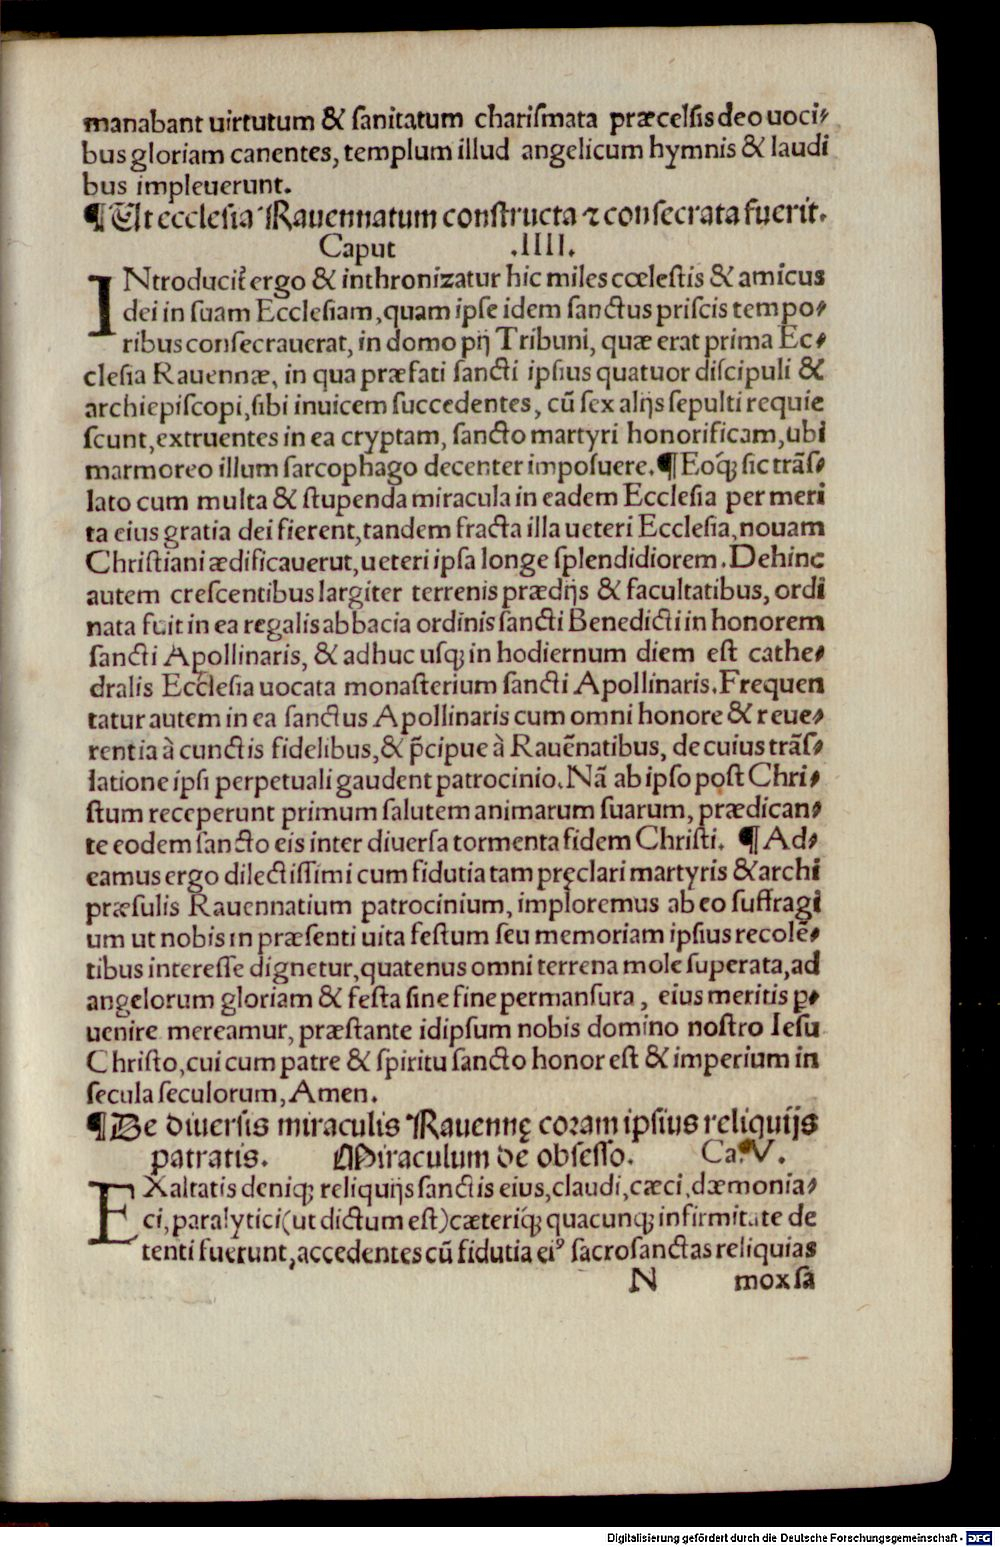 manabant uirtutum & ſanitatum chariſmata præcelſis deo uoci⸗
bus gloriam canentes, templum illud angelicum hymnis & laudi
bus impleuerunt.
¶ Ut eccleſia Rauennatum conſtructa ⁊ conſecrata fuerit.
Caput .IIII.
INtroducit᷑ ergo & inthronizatur hic miles cœleſtis & amicus
dei in ſuam Eccleſiam, quam ipſe idem ſanctus priſcis tempo⸗
ribus conſecrauerat, in domo pij Tribuni, quæ erat prima Ec⸗
cleſia Rauennæ, in qua præfati ſancti ipſius quatuor diſcipuli &
archiepiſcopi, ſibi inuicem ſuccedentes, cū ſex alijs ſepulti requie
ſcunt, extruentes in ea cryptam, ſancto martyri honorificam, ubi
marmoreo illum ſarcophago decenter impoſuere. ¶ Eoq́ꝫ ſic trāſ⸗
lato cum multa & ſtupenda miracula in eadem Eccleſia per meri
ta eius gratia dei fierent, tandem fracta illa ueteri Eccleſia, nouam
Chriſtiani ædificauerut, ueteri ipſa longe ſplendidiorem. Dehinc
autem creſcentibus largiter terrenis prædijs & facultatibus, ordi
nata fuit in ea regalis abbacia ordinis ſancti Benedicti in honorem
ſancti Apollinaris, & adhuc uſqꝫ in hodiernum diem eſt cathe⸗
dralis Eccleſia uocata monaſterium ſancti Apollinaris. Frequen
tatur autem in ea ſanctus Apollinaris cum omni honore & reue⸗
rentia à cunctis fidelibus, & p̄cipue à Rauēnatibus, de cuius trāſ⸗
latione ipſi perpetuali gaudent patrocinio. Nā ab ipſo poſt Chri⸗
ſtum receperunt primum ſalutem animarum ſuarum, prædican⸗
te eodem ſancto eis inter diuerſa tormenta fidem Chriſti. ¶ Ad⸗
eamus ergo dilectiſſimi cum fidutia tam pręclari martyris & archi
præſulis Rauennatium patrocinium, imploremus ab eo ſuffragi
um ut nobis in præſenti uita feſtum ſeu memoriam ipſius recolē⸗
tibus intereſſe dignetur, quatenus omni terrena mole ſuperata, ad
angelorum gloriam & feſta ſine fine permanſura, eius meritis ꝑ⸗
uenire mereamur, præſtante idipſum nobis domino noſtro Ieſu
Chriſto, cui cum patre & ſpiritu ſancto honor eſt & imperium in
ſecula ſeculorum, Amen.
¶ De diuerſis miraculis Rauennę coram ipſius reliquijs
patratis. Miraculum de obſeſſo. Ca. V.
EXaltatis deniqꝫ reliquijs ſanctis eius, claudi, cæci, dæmonia⸗
ci, paralytici (ut dictum eſt) cæteriq́ꝫ quacunqꝫ infirmitate de
tenti fuerunt, accedentes cū fidutia eiꝰ ſacroſanctas reliquias
N mox ſa
Digitalisierung gefördert durch die Deutsche Forschungsgemeinschaft - DFG